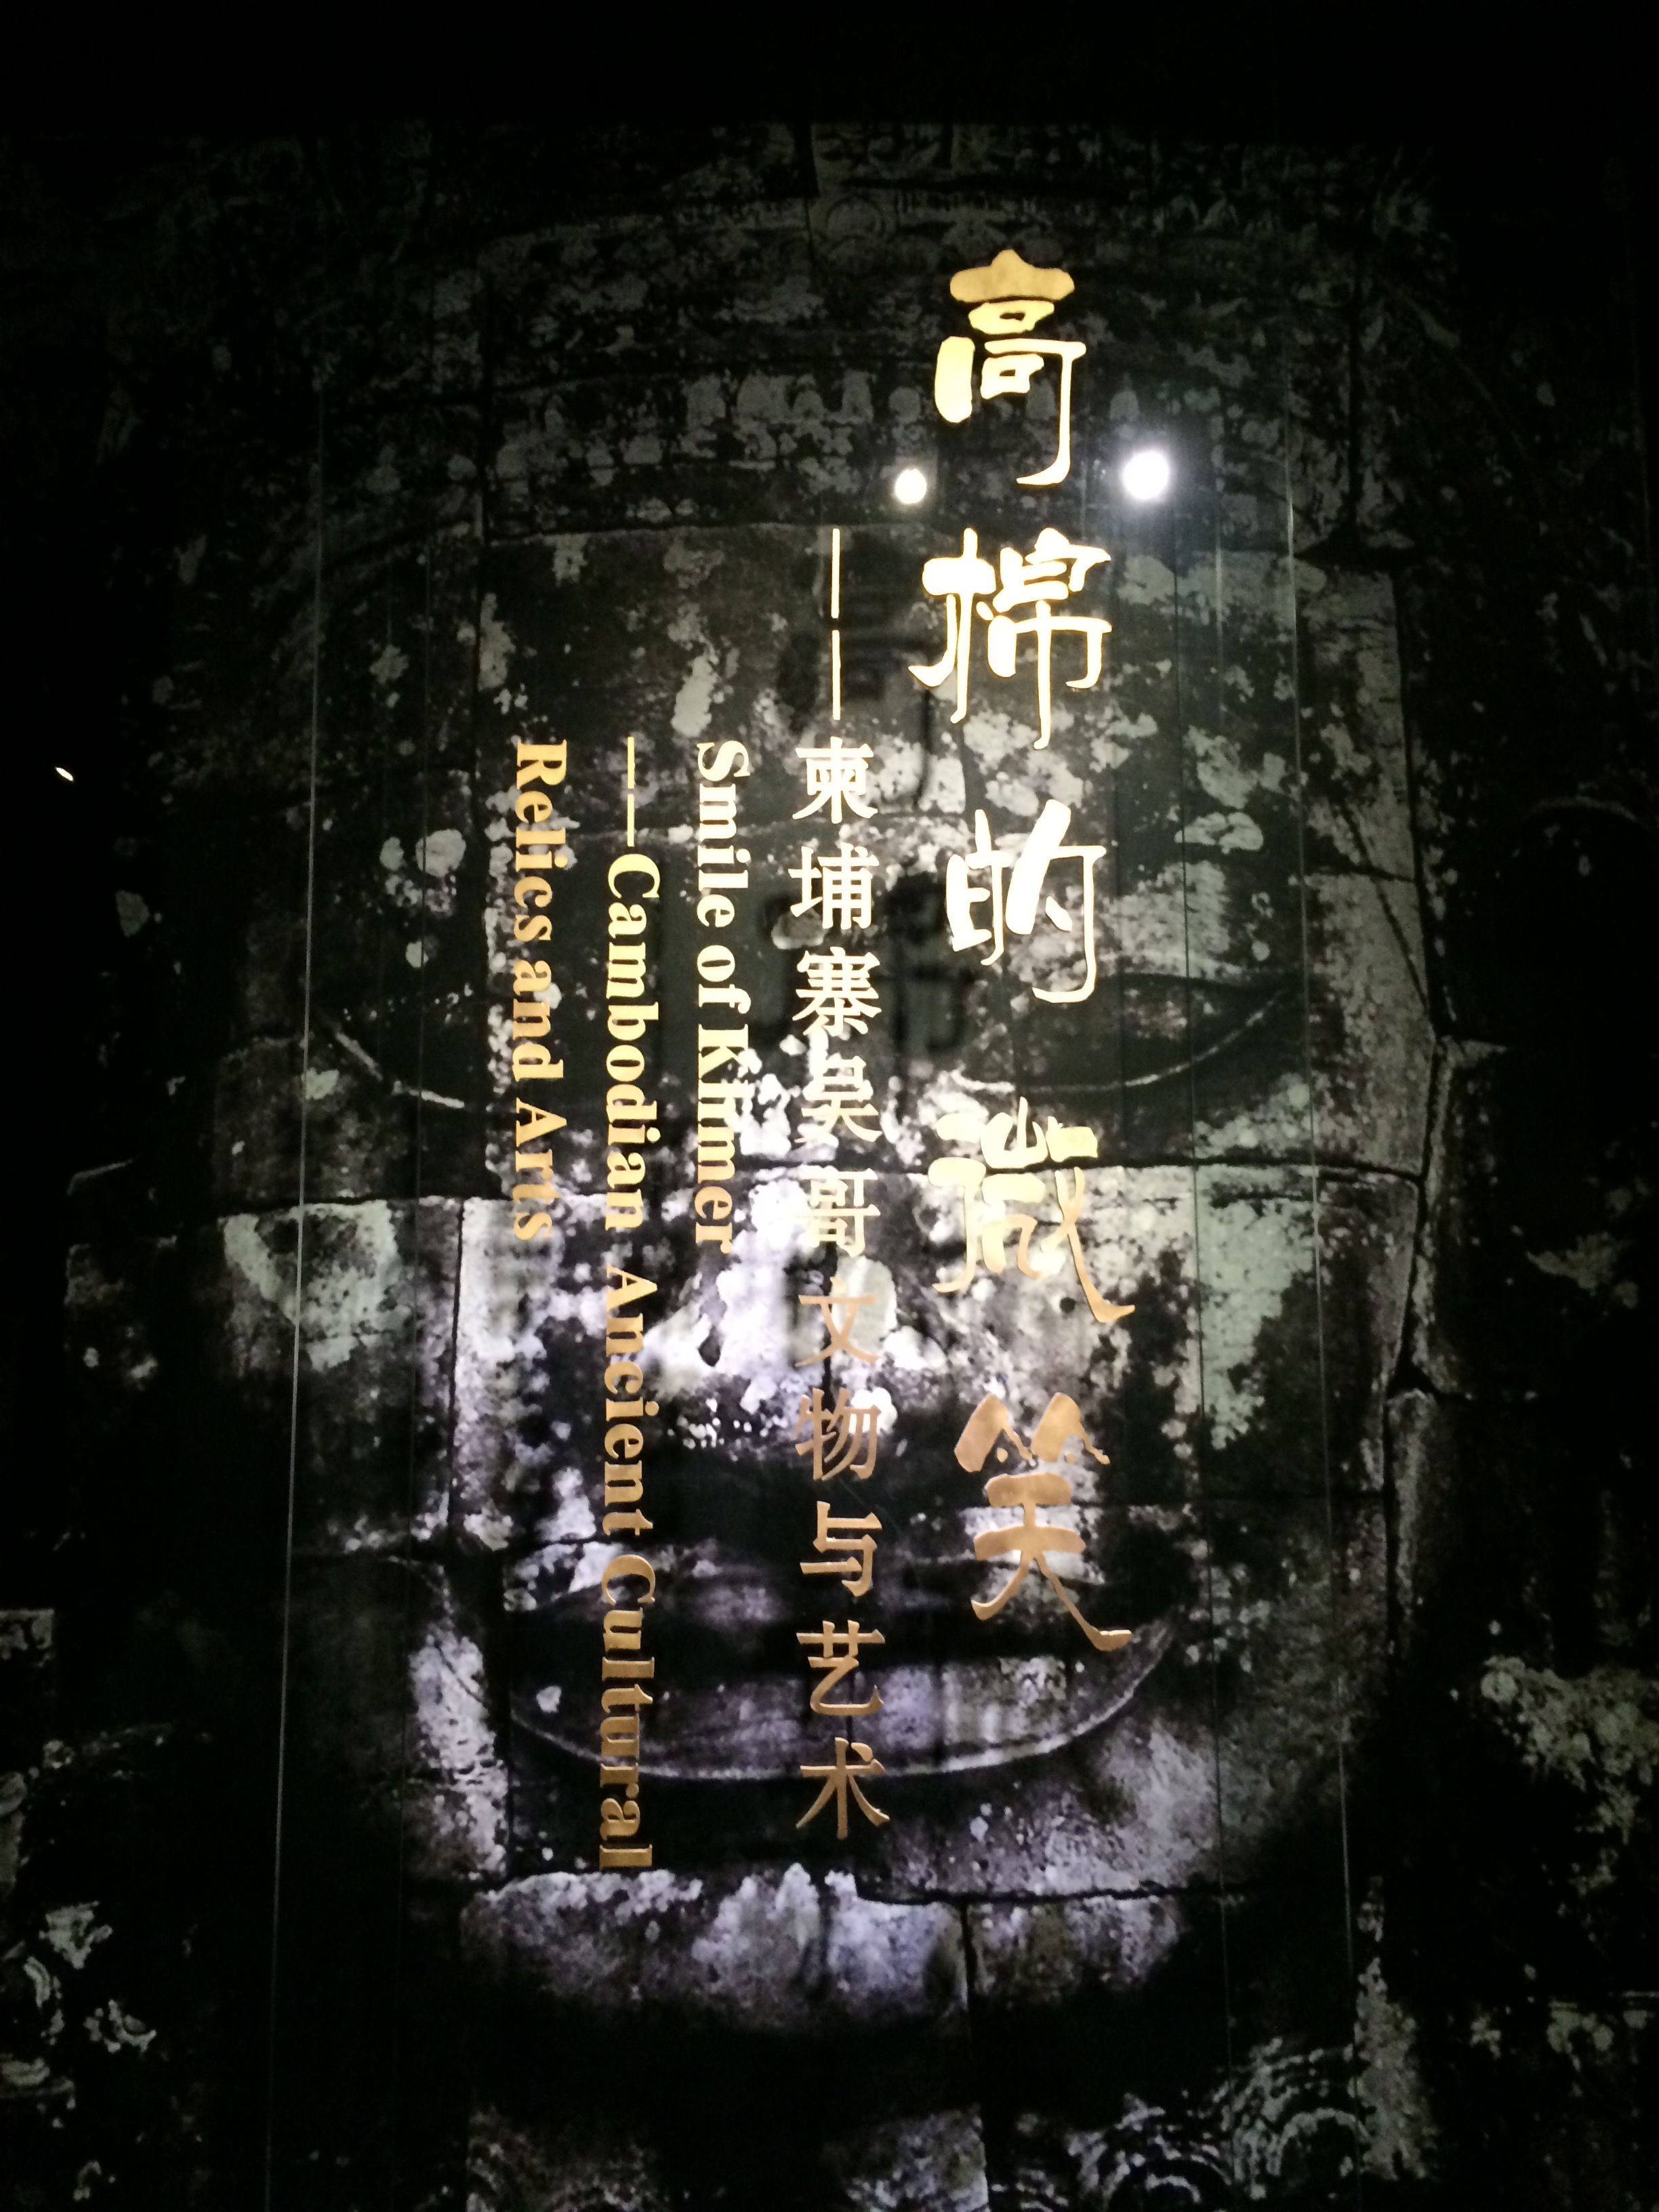 高棉的微笑
——柬埔寨吴哥文物与艺术
Smile of Khmer
——Cambodian Ancient Cultural
Relics and Arts